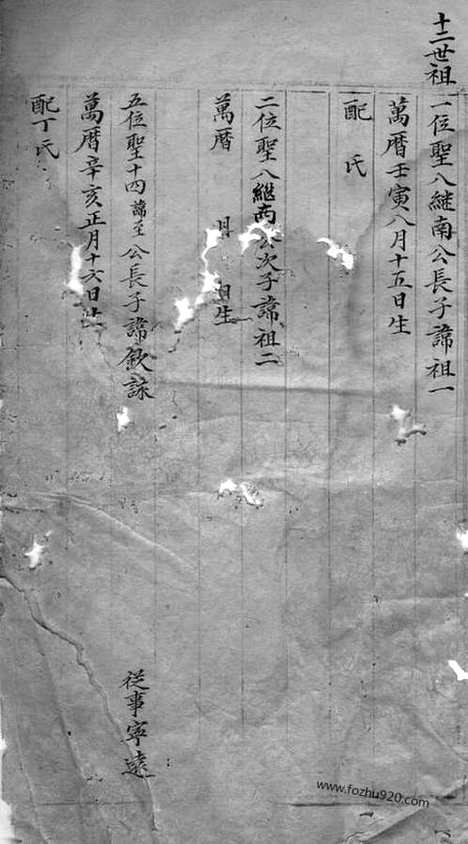 十二世祖
一位聖八継南公長子諱祖一
萬曆壬寅八月十五日生
配 氏
二位聖八継南公次子諱祖二
萬曆 月 日生
五位聖十四諱 公長子諱欽詠
從事寧遠
萬曆辛亥正月十六日
配丁氏
www.fozhu920.com